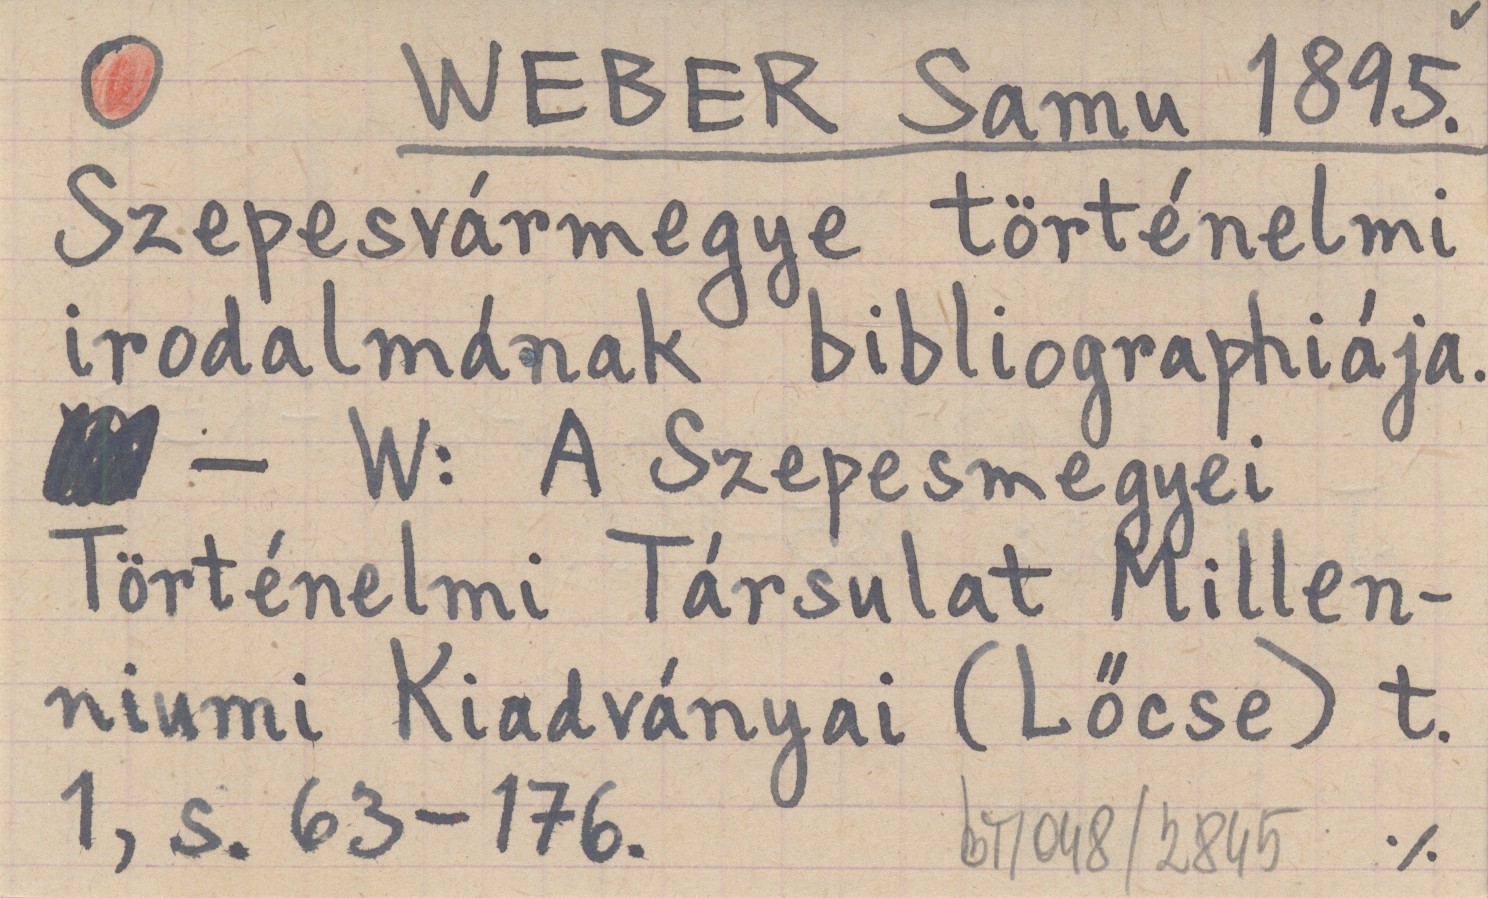 WEBER Samu 1895.
Szepesvármegye történelmi
irodalmának bibliographiája.
— W: A Szepesmegyei
Történelmi Társulat Millen-
niumi Kiadványai (Lőcse) t.
1, s. 63-176.
bT/048/2845 ./.